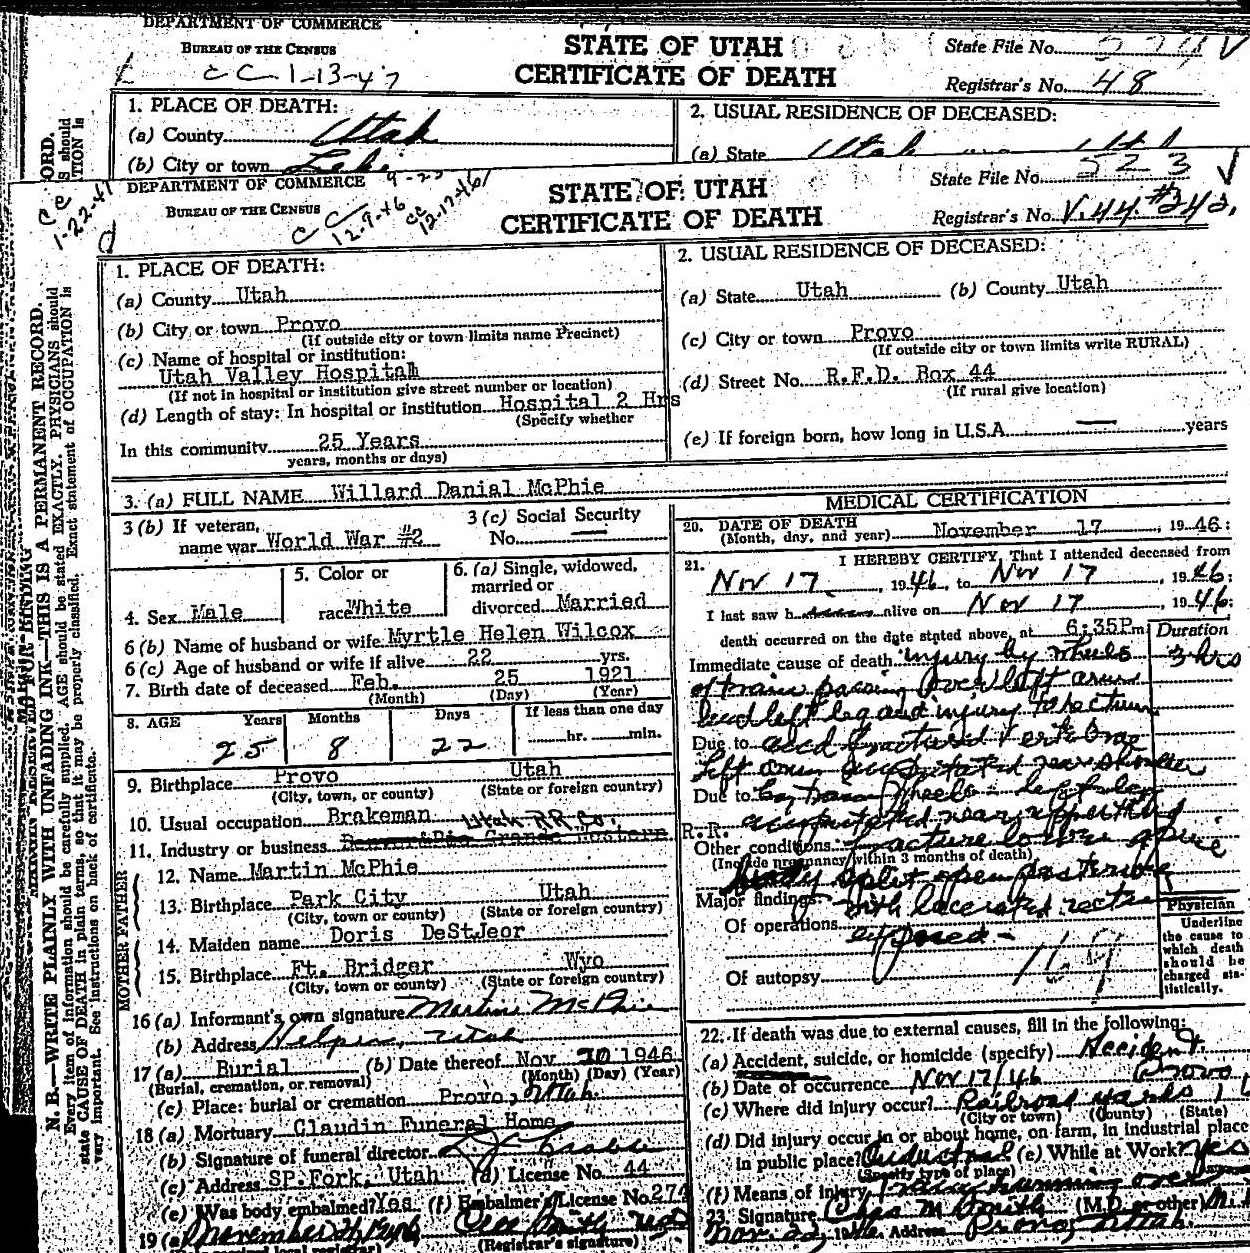 DEPARTMENT OF COMMERCE
BUREAU OF THE CENSUS
CC 1-13-47
STATE OF UTAH
CERTIFICATE OF DEATH
State File No.
Registrar's No. 48
1. PLACE OF DEATH:
(a) County Utah
(b) City or town Lehi
2. USUAL RESIDENCE OF DECEASED:
(a) State Utah
DEPARTMENT OF COMMERCE
BUREAU OF THE CENSUS
CC 12-9-46
CC 12-17-46
STATE OF UTAH
CERTIFICATE OF DEATH
State File No. 523
Registrar's No. V.44 #242.
1. PLACE OF DEATH:
(a) County Utah
(b) City or town Provo
(If outside city or town limits name Precinct)
(c) Name of hospital or institution:
Utah Valley Hospital
(If not in hospital or institution give street number or location)
(d) Length of stay: In hospital or institution Hospital 2 Hrs
(Specify whether
In this community 25 Years
years, months or days)
2. USUAL RESIDENCE OF DECEASED:
(a) State Utah (b) County Utah
(c) City or town Provo
(If outside city or town limits write RURAL)
(d) Street No. R.F.D. Box 44
(If rural give location)
(e) If foreign born, how long in U.S.A. — years
3. (a) FULL NAME Willard Danial McPhie
3 (b) If veteran, name war World War #2
3 (c) Social Security No. —
4. Sex Male
5. Color or race White
6. (a) Single, widowed, married or divorced Married
6 (b) Name of husband or wife Myrtle Helen Wilcox
6 (c) Age of husband or wife if alive 22 yrs.
7. Birth date of deceased Feb. 25 1921
(Month) (Day) (Year)
8. AGE Years Months Days If less than one day
25 8 22 hr. min.
9. Birthplace Provo Utah
(City, town, or county) (State or foreign country)
10. Usual occupation Brakeman Utah RR Co.
11. Industry or business Denver&Rio Grande Western R.R.
12. Name Martin McPhie
13. Birthplace Park City Utah
(City, town or county) (State or foreign country)
14. Maiden name Doris DeStJeor
15. Birthplace Ft. Bridger Wyo
(City, town or county) (State or foreign country)
FATHER
MOTHER
16 (a) Informant's own signature Martin McPhie
(b) Address Helper, Utah
17 (a) Burial (b) Date thereof Nov 20 1946
(Burial, cremation, or removal) (Month) (Day) (Year)
(c) Place: burial or cremation Provo, Utah.
18 (a) Mortuary Claudin Funeral Home
(b) Signature of funeral director
(c) Address SP.Fork, Utah (d) License No. 44
(e) Was body embalmed? Yes (f) Embalmer's License No. 274
19 (a) November 21, 1946
(Registrar's signature)
MEDICAL CERTIFICATION
20. DATE OF DEATH
(Month, day, and year) November 17, 1946:
21. I HEREBY CERTIFY, That I attended deceased from
Nov 17, 1946, to Nov 17, 1946;
I last saw him alive on Nov 17, 1946;
death occurred on the date stated above, at 6:35Pm
Duration
3 hrs
Immediate cause of death injury by wheels
of train passing over left arm
and left leg and injury to rectum
Due to and fractured vertebrae
left arm amputated near shoulder
Due to by train wheels - left leg
amputated near upper third
Other conditions fracture lower spine
(Include pregnancy within 3 months of death)
body split open posterior
Major findings: with lacerated rectum
Of operations exposed -
Of autopsy
169
Physician
Underline
the cause to
which death
should be
charged sta-
tistically.
22. If death was due to external causes, fill in the following:
(a) Accident, suicide, or homicide (specify) Accident
(b) Date of occurrence Nov 17/46 Provo
(c) Where did injury occur? Railroad yards
(City or town) (County) (State)
(d) Did injury occur in or about home, on farm, in industrial place
in public place? Industrial (e) While at Work? Yes
(Specify type of place)
(f) Means of injury Train running over
23. Signature Chas M Smith (M.D. or other)
Nov. 22, 1946 Address Provo, Utah
N. B.—WRITE PLAINLY WITH UNFADING INK—THIS IS A PERMANENT RECORD.
Every item of information should be carefully supplied. AGE should be stated EXACTLY. PHYSICIANS should
state CAUSE OF DEATH in plain terms, so that it may be properly classified. Exact statement of OCCUPATION is
very important. See instructions on back of certificate.